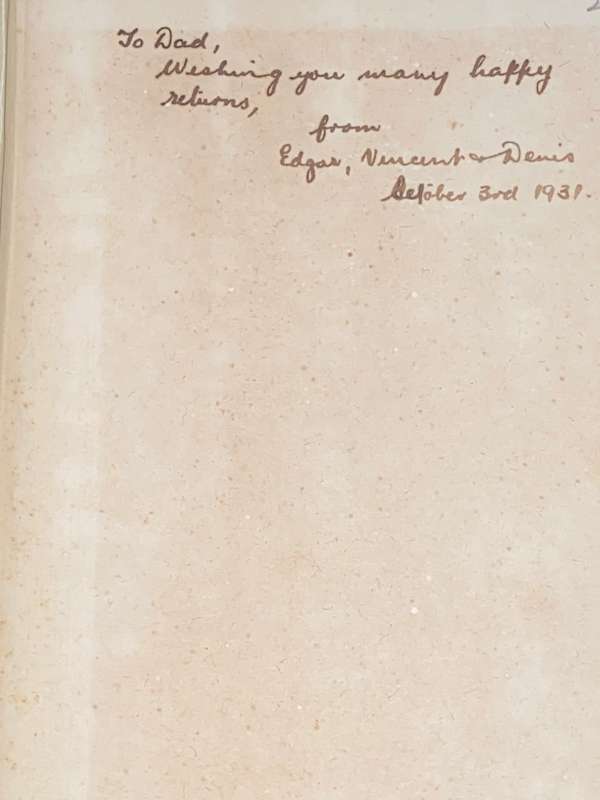 To Dad,
Wishing you many happy
returns,
from
Edgar, Vincent & Denis
October 3rd 1931.